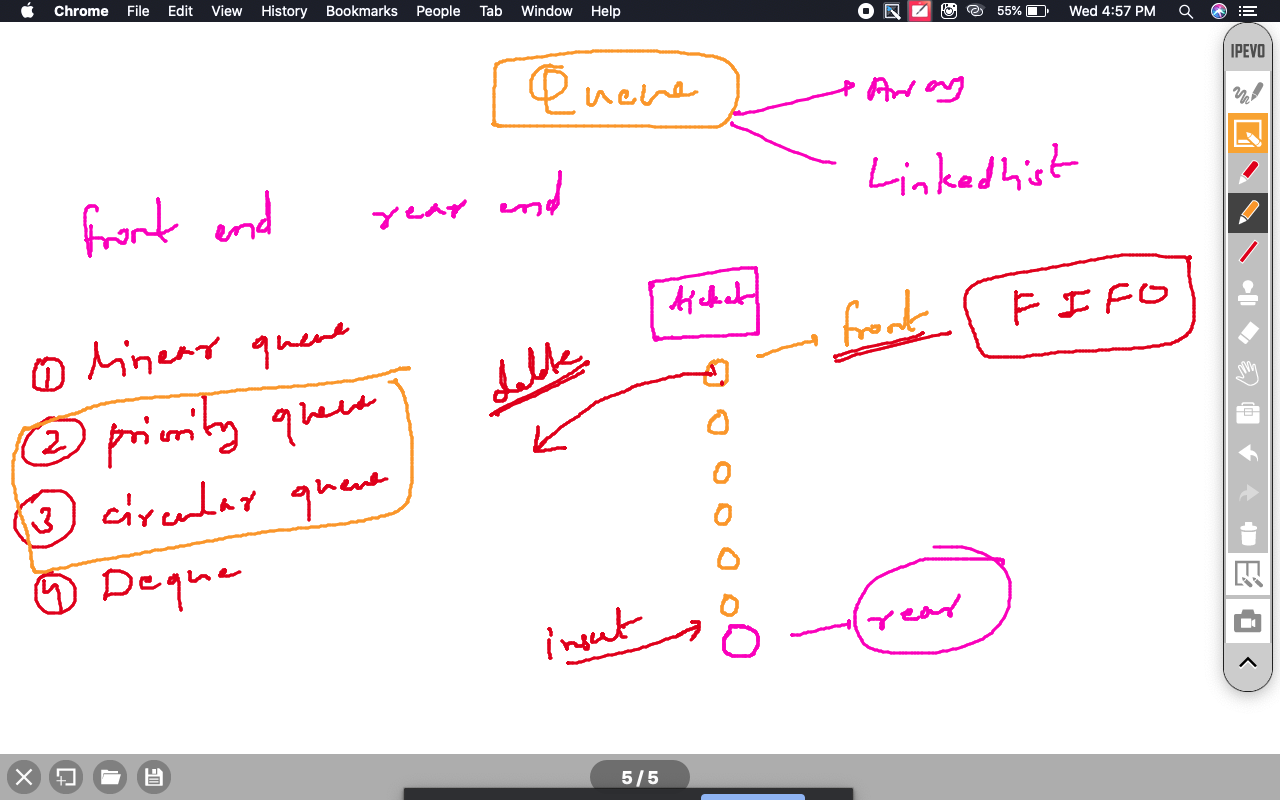 Chrome File Edit View History Bookmarks People Tab Window Help 55% Wed 4:57 PM
IPEVO
Queue
Array
Linked List
front end rear end
ticket
front
FIFO
delete
1 Linear queue
2 priority queue
3 circular queue
4 Deque
insert
rear
5 / 5